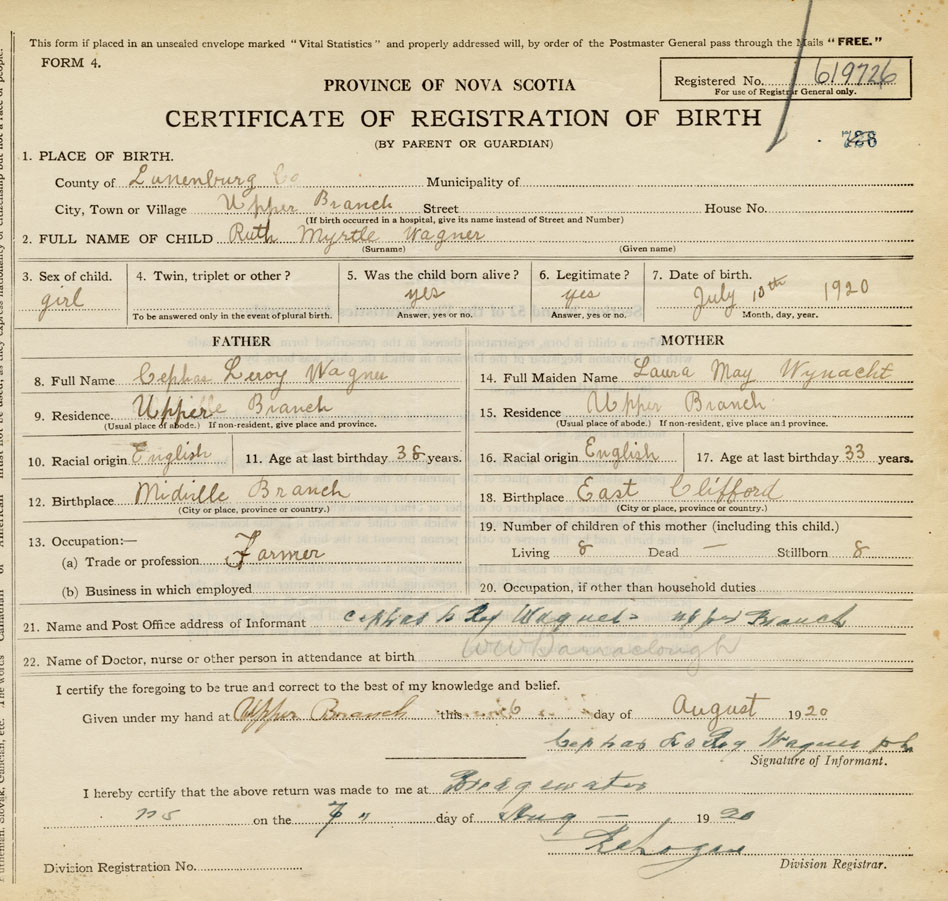 This form if placed in an unsealed envelope marked "Vital Statistics" and properly addressed will, by order of the Postmaster General pass through the Mails "FREE."
FORM 4.
Registered No. 619726
For use of Registrar General only.
PROVINCE OF NOVA SCOTIA
CERTIFICATE OF REGISTRATION OF BIRTH
(BY PARENT OR GUARDIAN)
1. PLACE OF BIRTH.
County of Lunenburg Co Municipality of
City, Town or Village Upper Branch Street House No.
(If birth occurred in a hospital, give its name instead of Street and Number)
2. FULL NAME OF CHILD Ruth Myrtle Wagner
(Surname) (Given name)
3. Sex of child. 4. Twin, triplet or other? 5. Was the child born alive? 6. Legitimate? 7. Date of birth.
girl yes yes July 10th 1920
To be answered only in the event of plural birth. Answer, yes or no. Answer, yes or no. Month, day, year.
FATHER
8. Full Name Cephas Leroy Wagner
9. Residence. Upper Branch
(Usual place of abode.) If non-resident, give place and province.
10. Racial origin English 11. Age at last birthday 38 years.
12. Birthplace Midville Branch
(City or place, province or country.)
13. Occupation:—
(a) Trade or profession Farmer
(b) Business in which employed
MOTHER
14. Full Maiden Name Laura May Wynacht
15. Residence Upper Branch
(Usual place of abode.) If non-resident, give place and province.
16. Racial origin English 17. Age at last birthday 33 years.
18. Birthplace East Clifford
(City or place, province or country.)
19. Number of children of this mother (including this child.)
Living 8 Dead — Stillborn 8
20. Occupation, if other than household duties
21. Name and Post Office address of Informant Cephas Le Roy Wagner Upper Branch
22. Name of Doctor, nurse or other person in attendance at birth WW Barraclough
I certify the foregoing to be true and correct to the best of my knowledge and belief.
Given under my hand at Upper Branch this 6 day of August 1920
Cephas Le Roy Wagner
Signature of Informant.
I hereby certify that the above return was made to me at Bridgewater
NS on the 7" day of Aug — 1920
Division Registration No. Division Registrar.